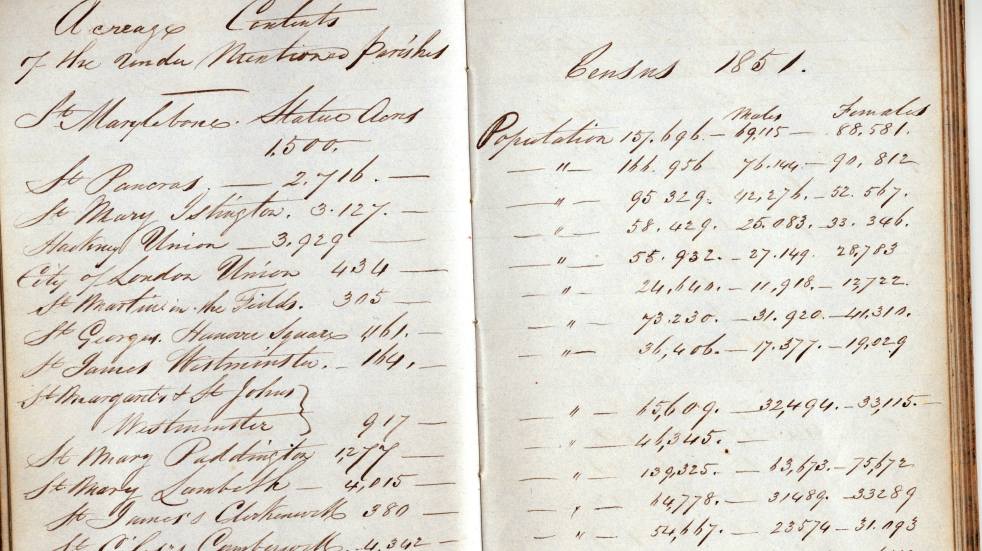 Acreage Contents
of the under Mentioned Parishes
St Marylebone. Statue Acres
1,500.
St Pancras — 2.716. —
St Mary Islington. 3.127. —
Hackney Union — 3.929 —
City of London Union 434 —
St Martin in the Fields. 305 —
St Georges Hanover Square 1,161. —
St James Westminster. - 164. —
St Margarets & St Johns
Westminster } 917 —
St Mary Paddington 1,277 —
St Mary Lambeth — 4,015 —
St James's Clerkenwell 380 —
St Giles Camberwell. 4.342 —
Census 1851.
Males Females
Population 157.696. — 69,115 — 88.581.
— " — 166.956 76.144. — 90,812
— " 95.329. 42,276. — 52.567.
— " — 58.429. 25.083. — 33.346.
— " 55.932. — 27.149. 28,783
— " — 24,640. — 11,918. — 12,722.
— " — 73.230. — 31.920. — 41.310.
— " — 36,406. — 17.377. — 19,029
— " — 65,609. — 32,494. — 33,115. —
— " — 46,345. —
— " — 139,325. — 63,673. — 75,672
— " — 64,778. — 31489. — 33289
— " — 54,667. — 23574 — 31.093